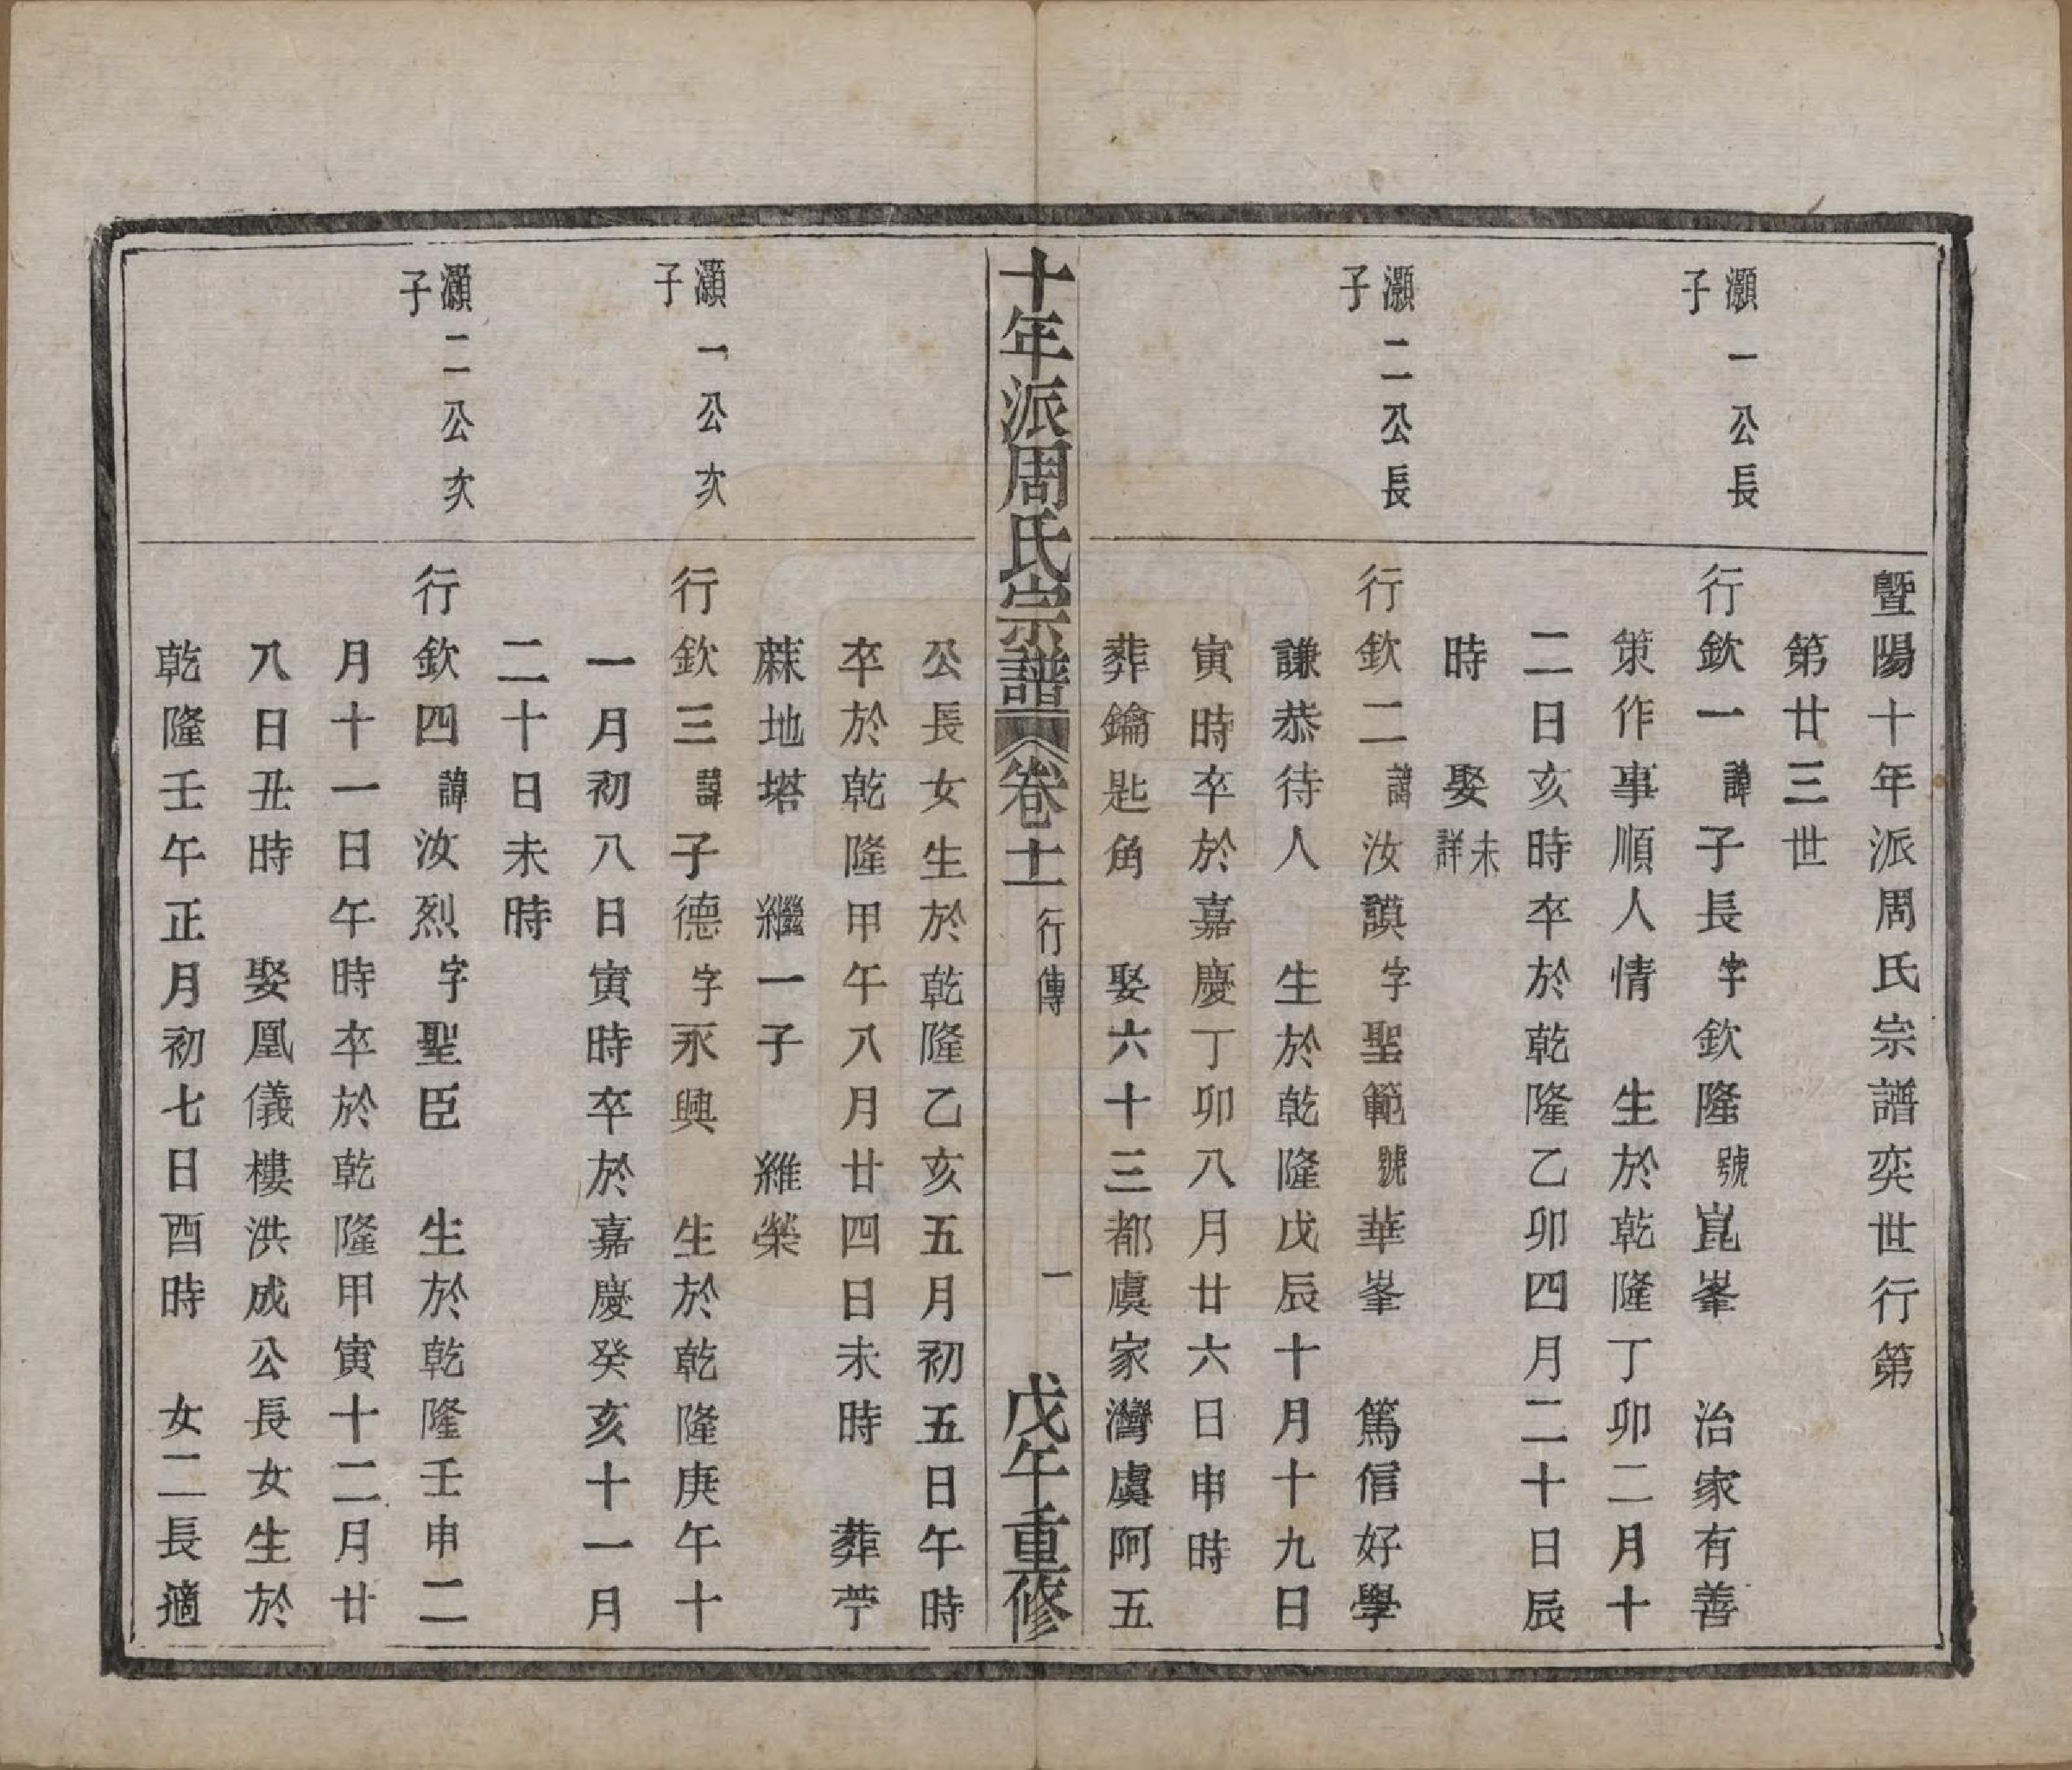 暨陽十年派周氏宗譜奕世行第
第廿三世
灝一公長子
行欽一諱子長字欽隆號崑峯 治家有善
策作事順人情 生於乾隆丁卯二月十
二日亥時卒於乾隆乙卯四月二十日辰
時 娶未詳
灝二公長子
行欽二諱汝謨字聖範號華峯 篤信好學
謙恭待人 生於乾隆戊辰十月十九日
寅時卒於嘉慶丁卯八月廿六日申時
葬鑰匙角 娶六十三都虞家灣虞阿五
十年派周氏宗譜 卷十一 行傳 一 戊午重修
公長女生於乾隆乙亥五月初五日午時
卒於乾隆甲午八月廿四日未時 葬苧
蔴地塔 繼一子 維榮
灝一公次子
行欽三諱子德字永興 生於乾隆庚午十
一月初八日寅時卒於嘉慶癸亥十一月
二十日未時
灝二公次子
行欽四諱汝烈字聖臣 生於乾隆壬申二
月十一日午時卒於乾隆甲寅十二月廿
八日丑時 娶凰儀樓洪成公長女生於
乾隆壬午正月初七日酉時 女二長適